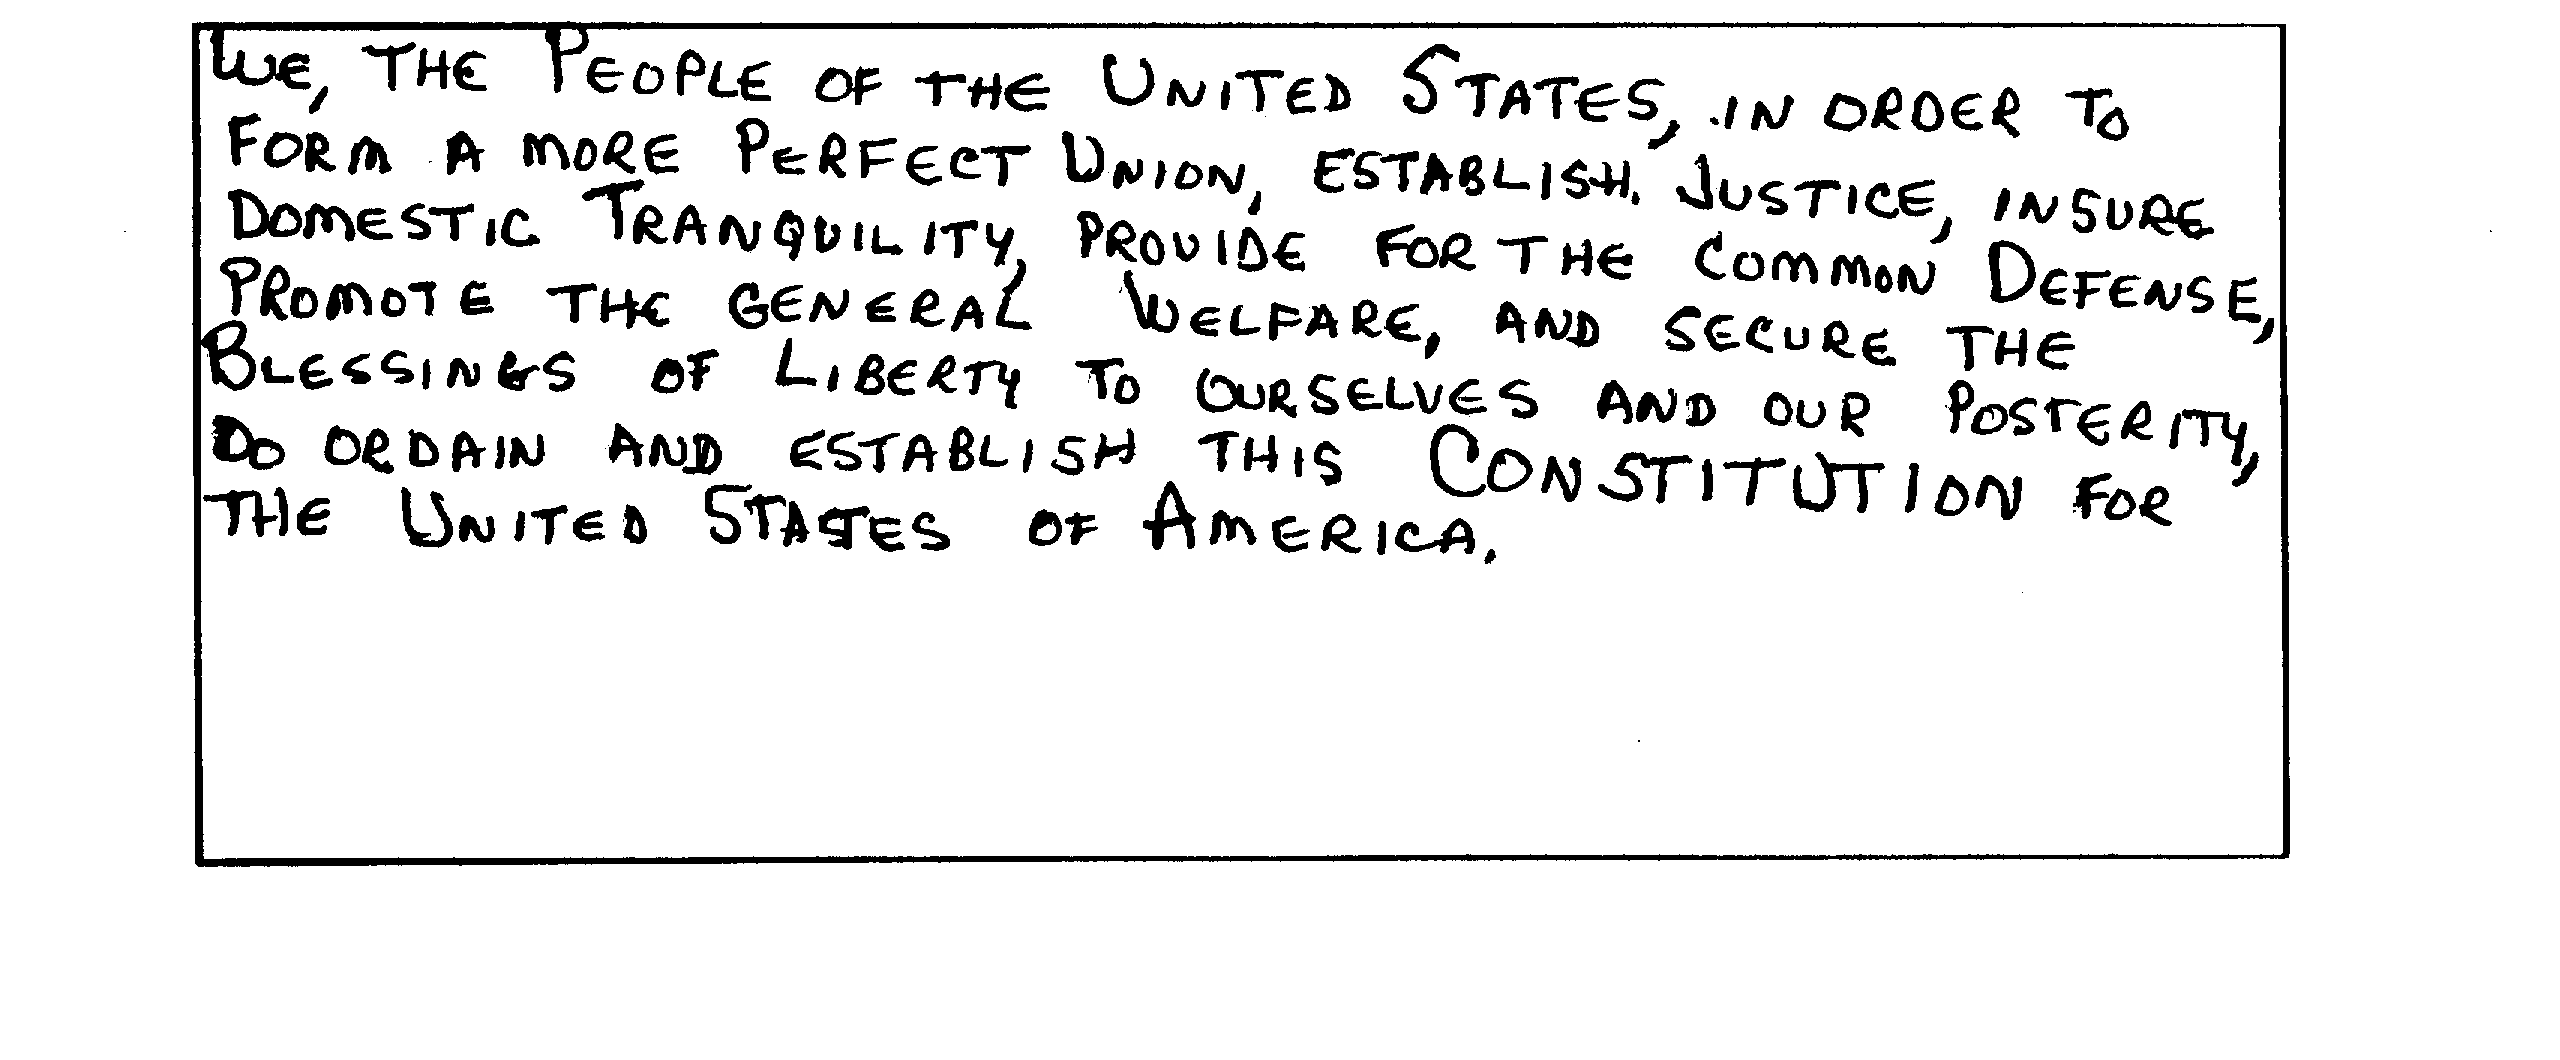 WE, THE PEOPLE OF THE UNITED STATES, IN ORDER TO
FORM A MORE PERFECT UNION, ESTABLISH JUSTICE, INSURE
DOMESTIC TRANQUILITY, PROVIDE FOR THE COMMON DEFENSE,
PROMOTE THE GENERAL WELFARE, AND SECURE THE
BLESSINGS OF LIBERTY TO OURSELVES AND OUR POSTERITY,
DO ORDAIN AND ESTABLISH THIS CONSTITUTION FOR
THE UNITED STATES OF AMERICA.